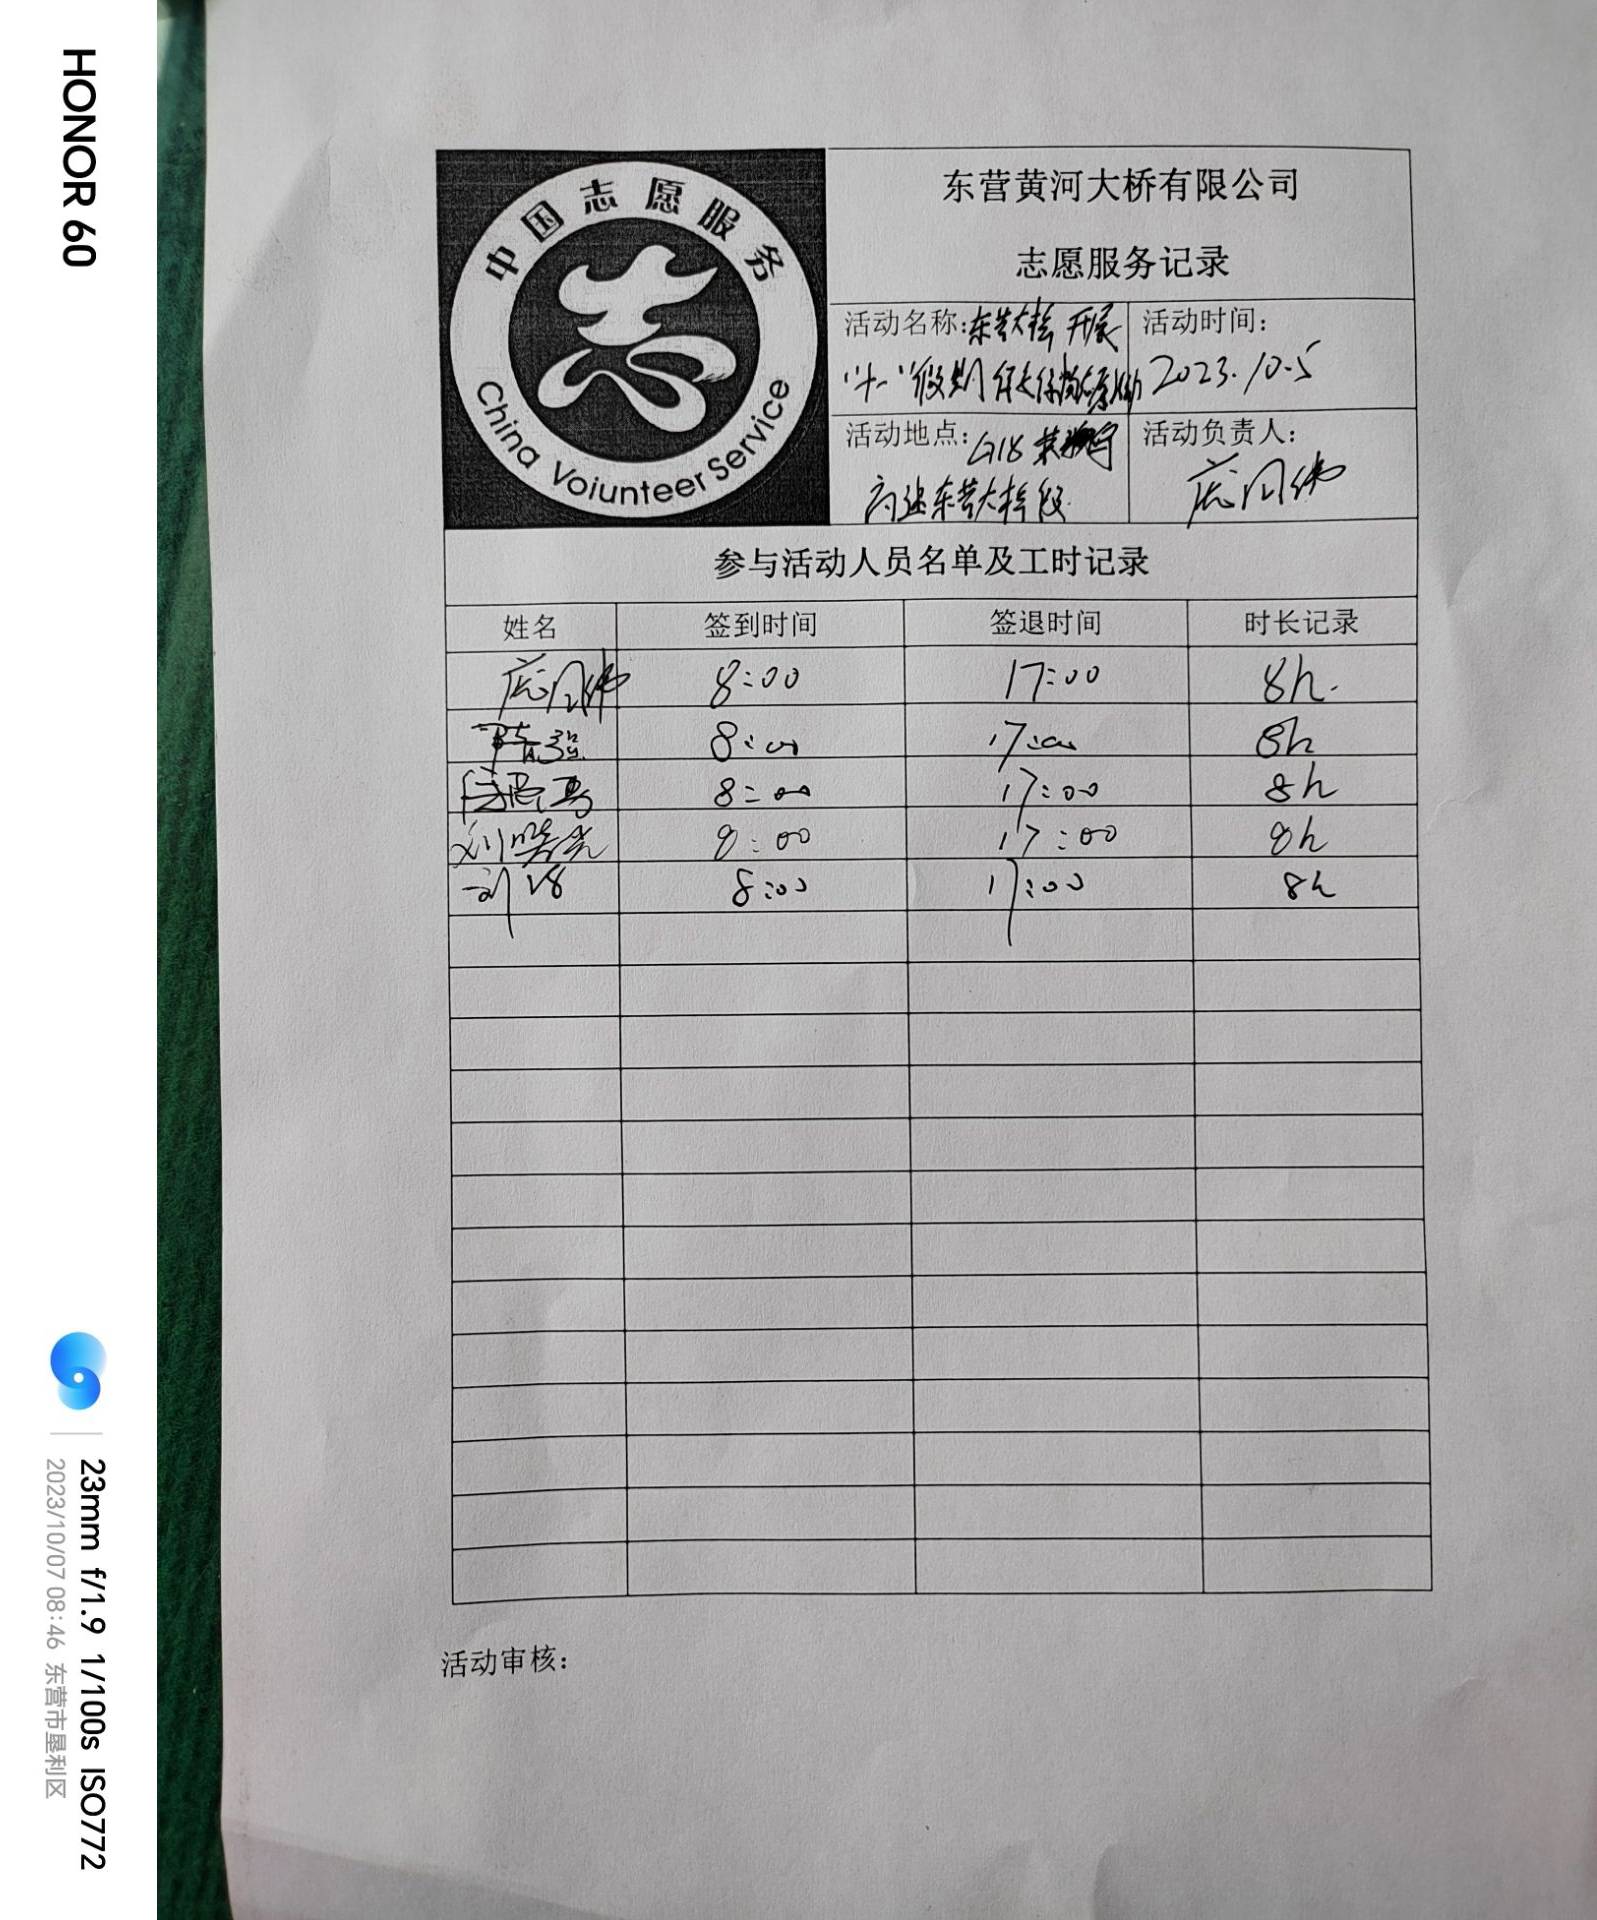 HONOR 60
23mm f/1.9 1/100s ISO772
2023/10/07 08:46 东营市垦利区
中国志愿服务
China Voiunteer Service
东营黄河大桥有限公司
志愿服务记录
活动名称:东营大桥开展
"十一"假期
活动时间:
2023.10.5
活动地点:G18荣乌
高速东营大桥段
活动负责人:
参与活动人员名单及工时记录
姓名 签到时间 签退时间 时长记录
8:00 17:00 8h.
8:00 17:00 8h
8:00 17:00 8h
8:00 17:00 8h
刘 8:00 17:00 8h
活动审核: